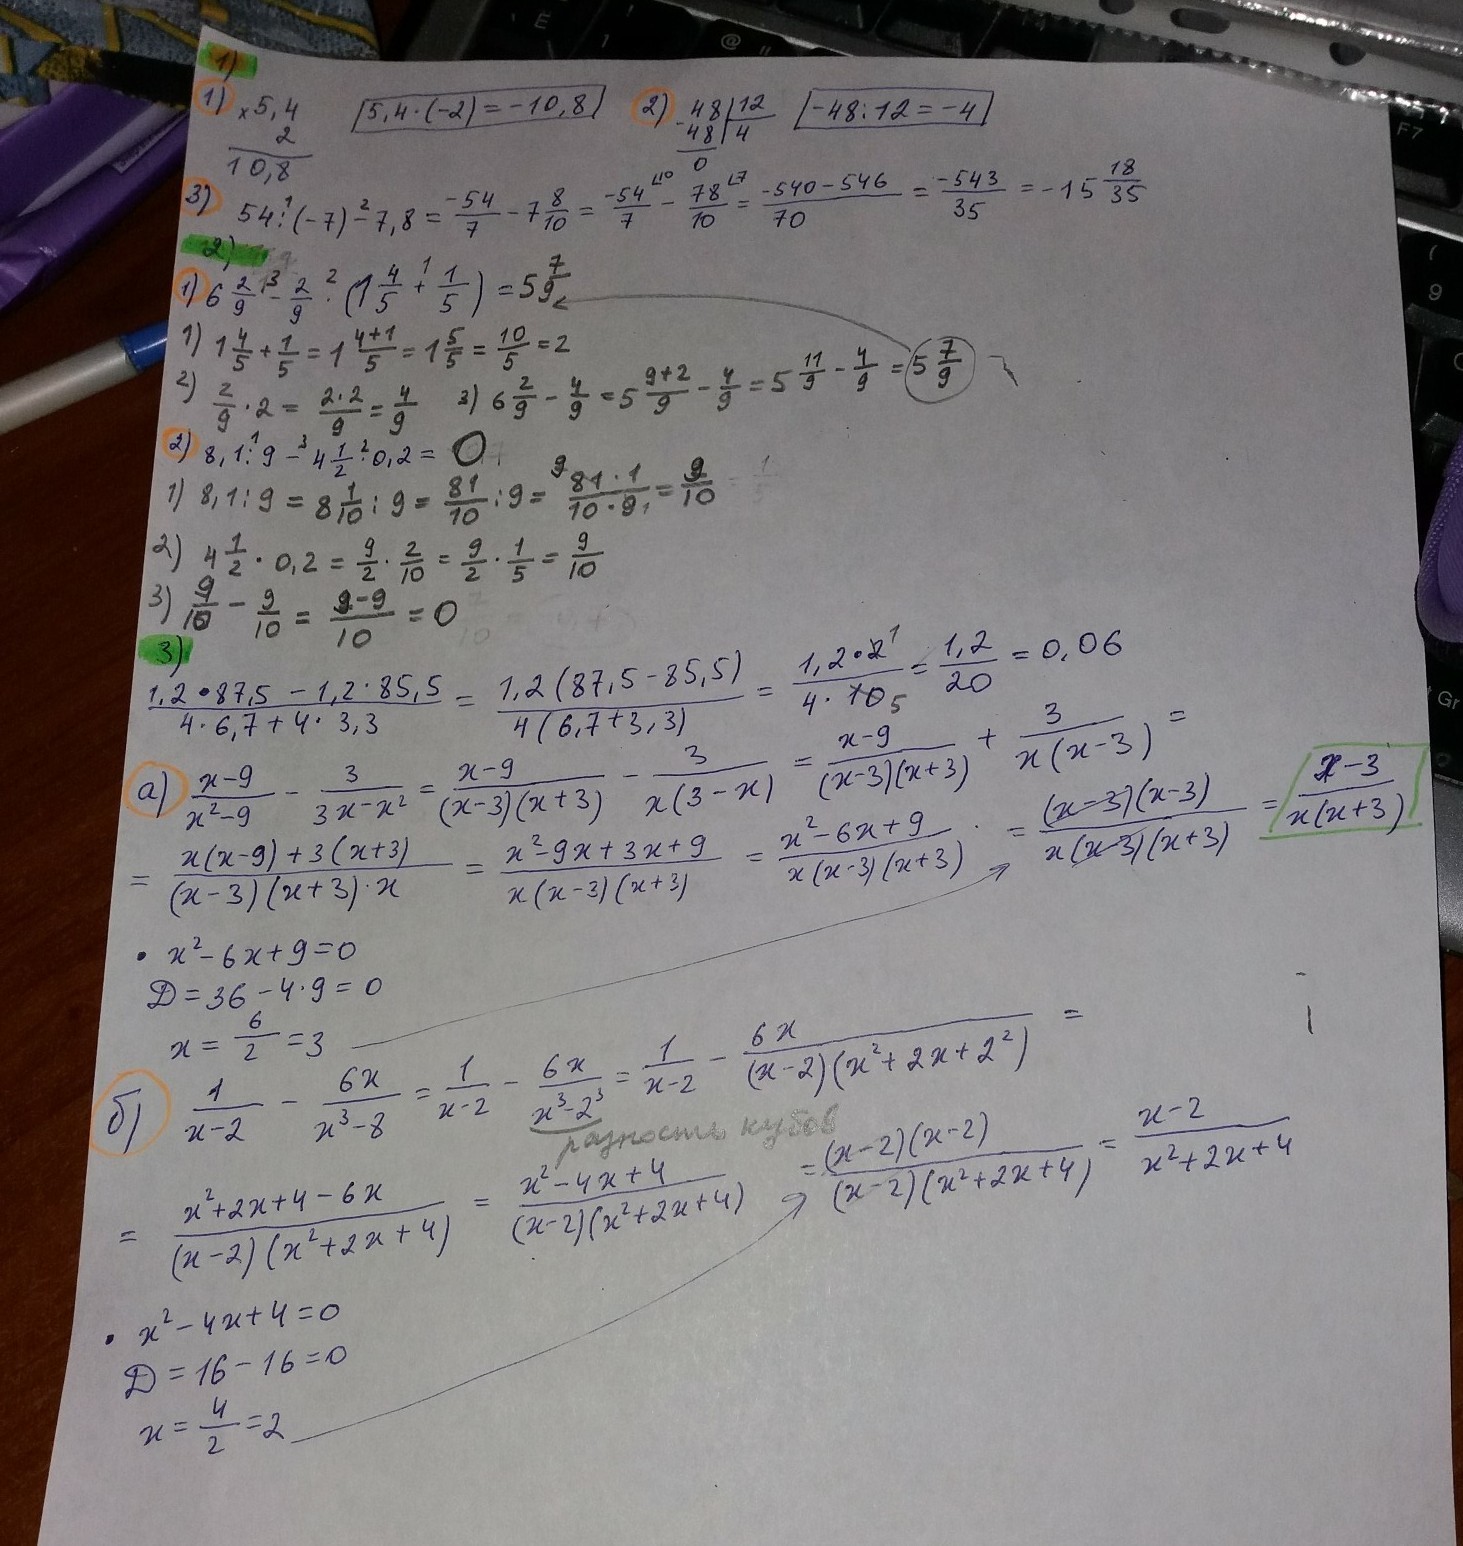 1)
1) ×5,4 2 10,8 5,4·(-2)=-10,8 2) -48|12 48 4 0 -48:12=-4
3) 54:(-7)-7,8 = -54/7 - 7 8/10 = -54/7 - 78/10 = (-540-546)/70 = -543/35 = -15 18/35
2)
1) 6 2/9 - 2/9 · (1 4/5 + 1/5) = 5 7/9
1) 1 4/5 + 1/5 = 1 (4+1)/5 = 1 5/5 = 10/5 = 2
2) 2/9 · 2 = (2·2)/9 = 4/9 3) 6 2/9 - 4/9 = 5 (9+2)/9 - 4/9 = 5 11/9 - 4/9 = 5 7/9
2) 8,1:9 - 4 1/2 · 0,2 = 0
1) 8,1:9 = 8 1/10 : 9 = 81/10 : 9 = (81·1)/(10·9) = 9/10
2) 4 1/2 · 0,2 = 9/2 · 2/10 = 9/2 · 1/5 = 9/10
3) 9/10 - 9/10 = (9-9)/10 = 0
3)
(1,2·87,5-1,2·85,5)/(4·6,7+4·3,3) = (1,2(87,5-85,5))/(4(6,7+3,3)) = (1,2·2)/(4·10) = 1,2/20 = 0,06
а) (x-9)/(x²-9) - 3/(3x-x²) = (x-9)/((x-3)(x+3)) - 3/(x(3-x)) = (x-9)/((x-3)(x+3)) + 3/(x(x-3)) =
= (x(x-9)+3(x+3))/((x-3)(x+3)·x) = (x²-9x+3x+9)/(x(x-3)(x+3)) = (x²-6x+9)/(x(x-3)(x+3)) = ((x-3)(x-3))/(x(x-3)(x+3)) = (x-3)/(x(x+3))
• x²-6x+9=0
Д=36-4·9=0
x = 6/2 = 3
б) 1/(x-2) - 6x/(x³-8) = 1/(x-2) - 6x/(x³-2³) = 1/(x-2) - 6x/((x-2)(x²+2x+2²)) =
разность кубов
= (x²+2x+4-6x)/((x-2)(x²+2x+4)) = (x²-4x+4)/((x-2)(x²+2x+4)) = ((x-2)(x-2))/((x-2)(x²+2x+4)) = (x-2)/(x²+2x+4)
• x²-4x+4=0
Д=16-16=0
x = 4/2 = 2